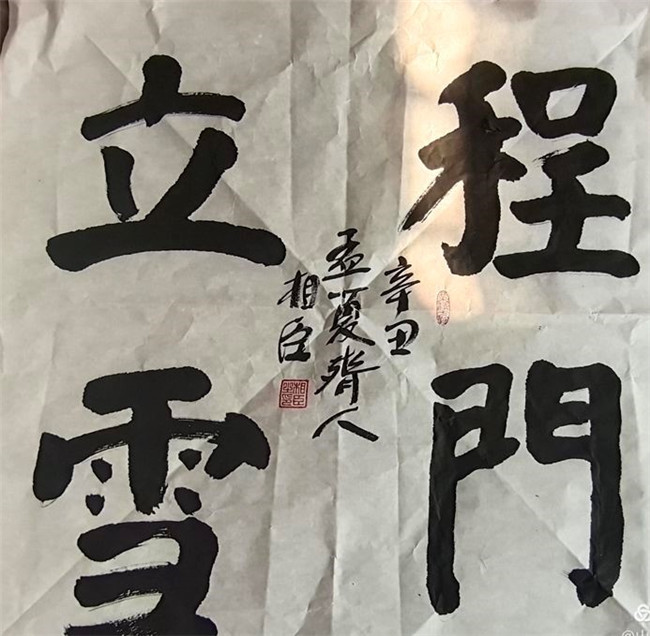 程門
立雪
辛丑
孟夏齊人
相臣